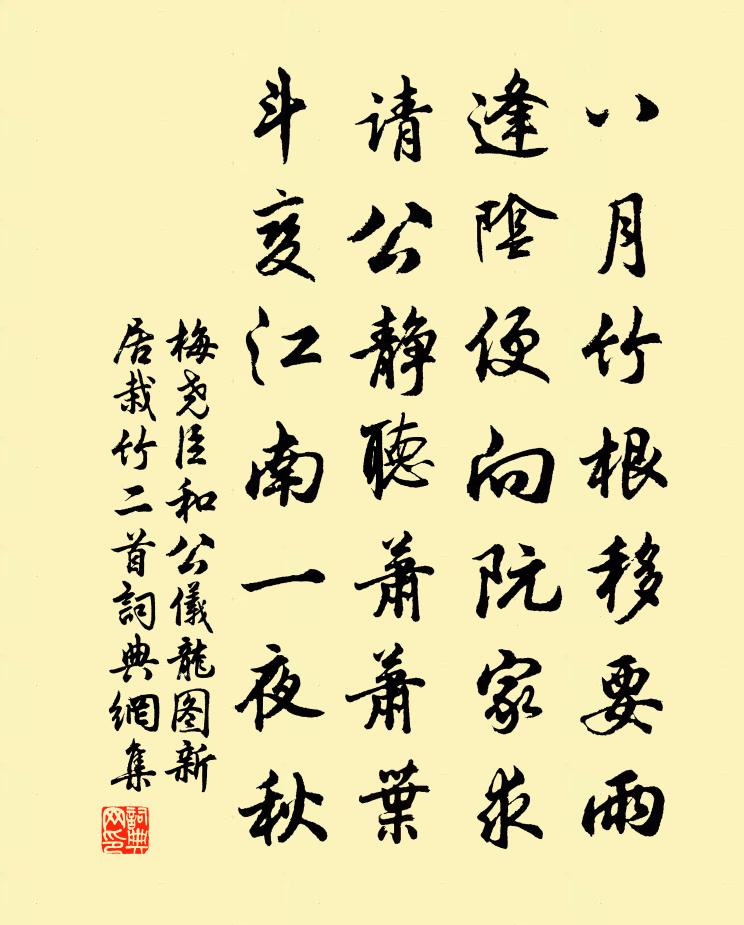 八月竹根移要雨
逢陰便向阮家求
请公静聽蕭蕭葉
斗变江南一夜秋
梅尧臣和公儀龍图新
居栽竹二首詞典網集
詞典
网印